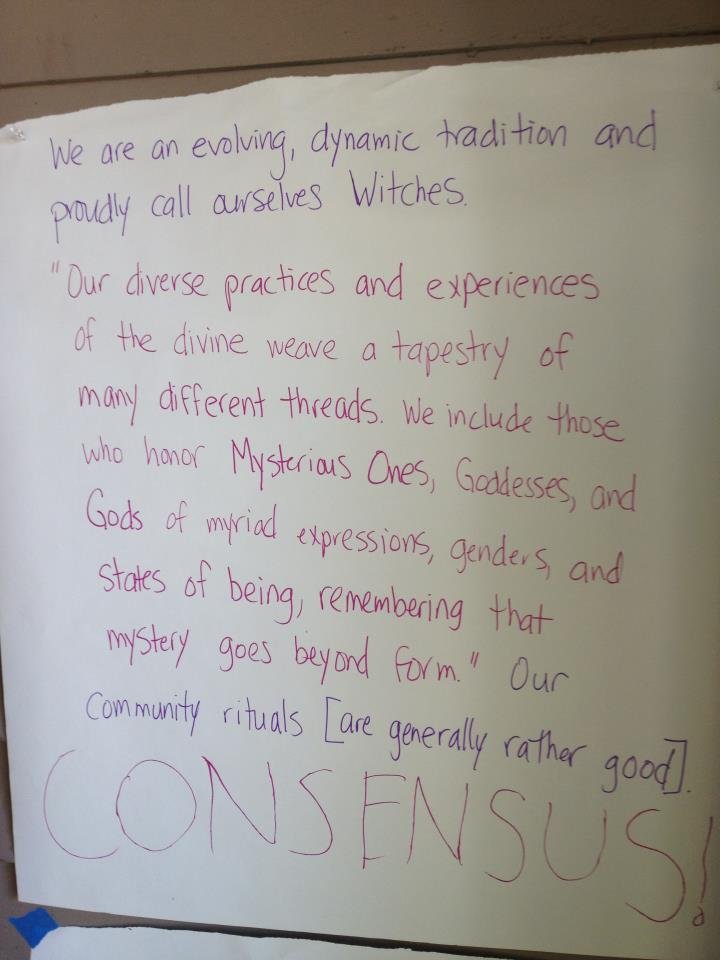 We are an evolving, dynamic tradition and
proudly call ourselves Witches.
"Our diverse practices and experiences
of the divine weave a tapestry of
many different threads. We include those
who honor Mysterious Ones, Goddesses, and
Gods of myriad expressions, genders, and
states of being, remembering that
mystery goes beyond form." Our
Community rituals [are generally rather good].
CONSENSUS!